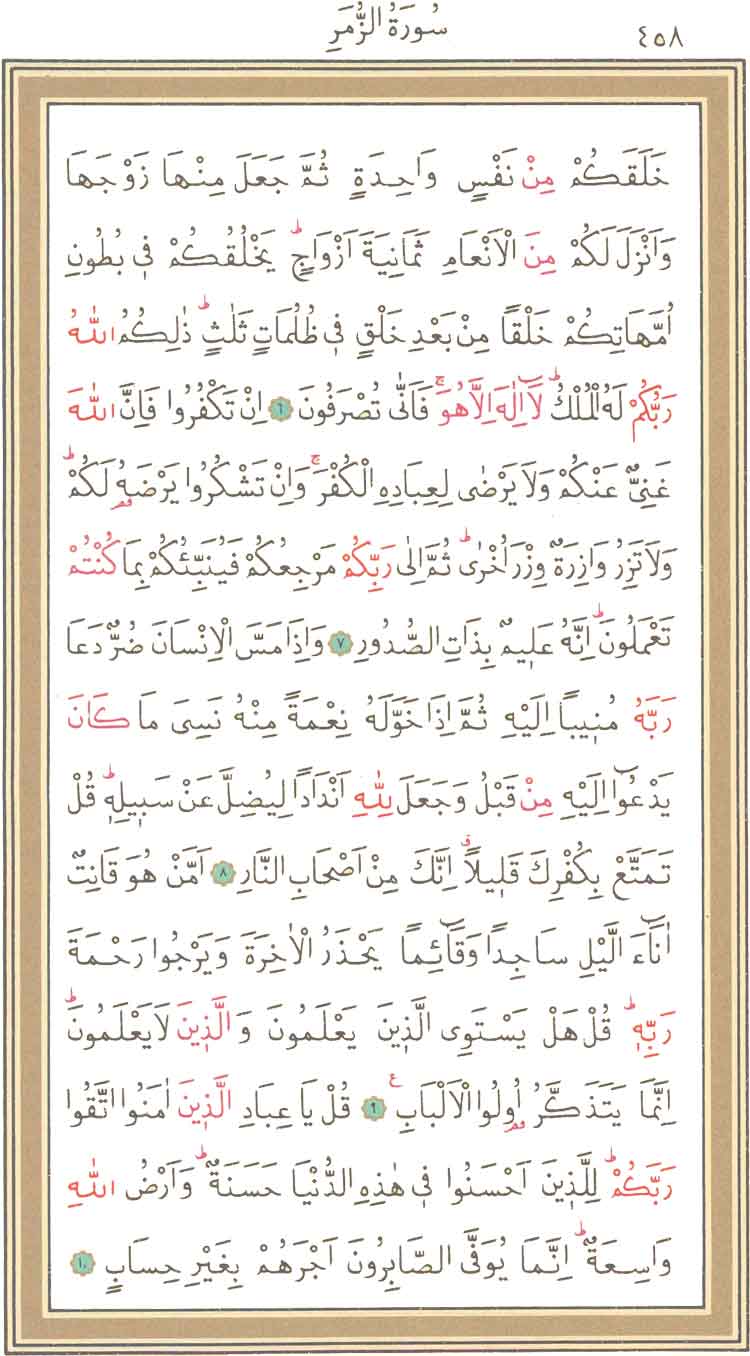 ٤٥٨
سُورَةُ الزُّمَرِ
خَلَقَكُمْ مِنْ نَفْسٍ وَاحِدَةٍ ثُمَّ جَعَلَ مِنْهَا زَوْجَهَا
وَاَنْزَلَ لَكُمْ مِنَ الْاَنْعَامِ ثَمَانِيَةَ اَزْوَاجٍۜ يَخْلُقُكُمْ ف۪ي بُطُونِ
اُمَّهَاتِكُمْ خَلْقاً مِنْ بَعْدِ خَلْقٍ ف۪ي ظُلُمَاتٍ ثَلٰثٍۜ ذٰلِكُمُ اللّٰهُ
رَبُّكُمْ لَهُ الْمُلْكُۜ لَٓا اِلٰهَ اِلَّا هُوَۚ فَاَنّٰى تُصْرَفُونَ ٦ اِنْ تَكْفُرُوا فَاِنَّ اللّٰهَ
غَنِيٌّ عَنْكُمْ وَلَا يَرْضٰى لِعِبَادِهِ الْكُفْرَۚ وَاِنْ تَشْكُرُوا يَرْضَهُ لَكُمْۜ
وَلَا تَزِرُ وَازِرَةٌ وِزْرَ اُخْرٰىۜ ثُمَّ اِلٰى رَبِّكُمْ مَرْجِعُكُمْ فَيُنَبِّئُكُمْ بِمَا كُنْتُمْ
تَعْمَلُونَۜ اِنَّهُ عَل۪يمٌ بِذَاتِ الصُّدُورِ ٧ وَاِذَا مَسَّ الْاِنْسَانَ ضُرٌّ دَعَا
رَبَّهُ مُن۪يباً اِلَيْهِ ثُمَّ اِذَا خَوَّلَهُ نِعْمَةً مِنْهُ نَسِيَ مَا كَانَ
يَدْعُٓوا اِلَيْهِ مِنْ قَبْلُ وَجَعَلَ لِلّٰهِ اَنْدَاداً لِيُضِلَّ عَنْ سَب۪يلِه۪ۜ قُلْ
تَمَتَّعْ بِكُفْرِكَ قَل۪يلاًۗ اِنَّكَ مِنْ اَصْحَابِ النَّارِ ٨ اَمَّنْ هُوَ قَانِتٌ
اٰنَٓاءَ الَّيْلِ سَاجِداً وَقَٓائِماً يَحْذَرُ الْاٰخِرَةَ وَيَرْجُوا رَحْمَةَ
رَبِّه۪ۜ قُلْ هَلْ يَسْتَوِي الَّذ۪ينَ يَعْلَمُونَ وَالَّذ۪ينَ لَا يَعْلَمُونَۜ
اِنَّمَا يَتَذَكَّرُ اُو۬لُوا الْاَلْبَابِ۟ ٩ قُلْ يَا عِبَادِ الَّذ۪ينَ اٰمَنُوا اتَّقُوا
رَبَّكُمْۜ لِلَّذ۪ينَ اَحْسَنُوا ف۪ي هٰذِهِ الدُّنْيَا حَسَنَةٌۜ وَاَرْضُ اللّٰهِ
وَاسِعَةٌۜ اِنَّمَا يُوَفَّى الصَّابِرُونَ اَجْرَهُمْ بِغَيْرِ حِسَابٍ ١٠